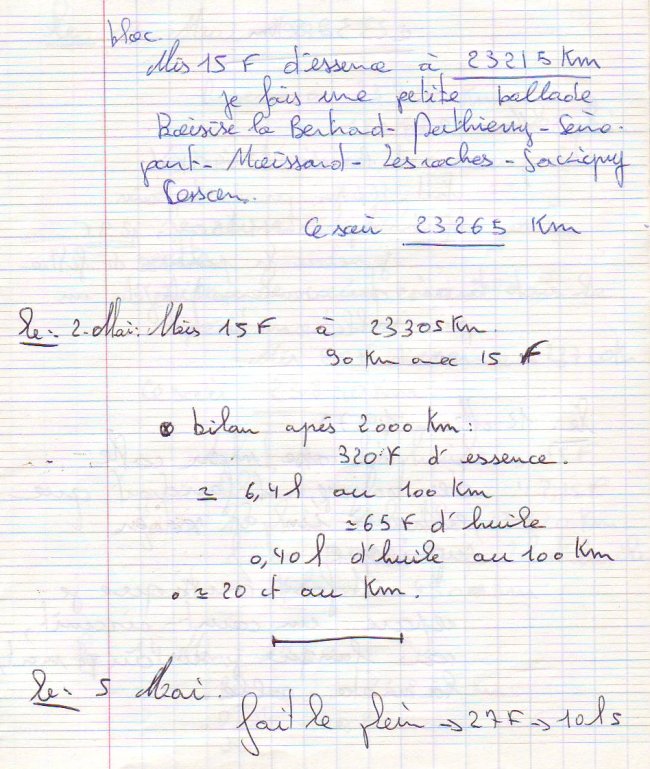 bloc.
Mis 15 F d'essence à 23215 Km
je fais une petite ballade
Boisise la Bertrad - Perthierry - Seine-
port - Moissard - Les roches - Savigny
Cesson.
Ce soir 23265 Km
le: 2. Mai: Mis 15 F à 23305 Km.
90 Km avec 15 F
bilan après 2000 Km:
320 F d'essence.
≃ 6,4 l au 100 Km
≃ 65 F d'huile
0,40 l d'huile au 100 Km
≃ 20 ct au Km.
le: 5 Mai.
fait le plein → 27 F → 10 ls